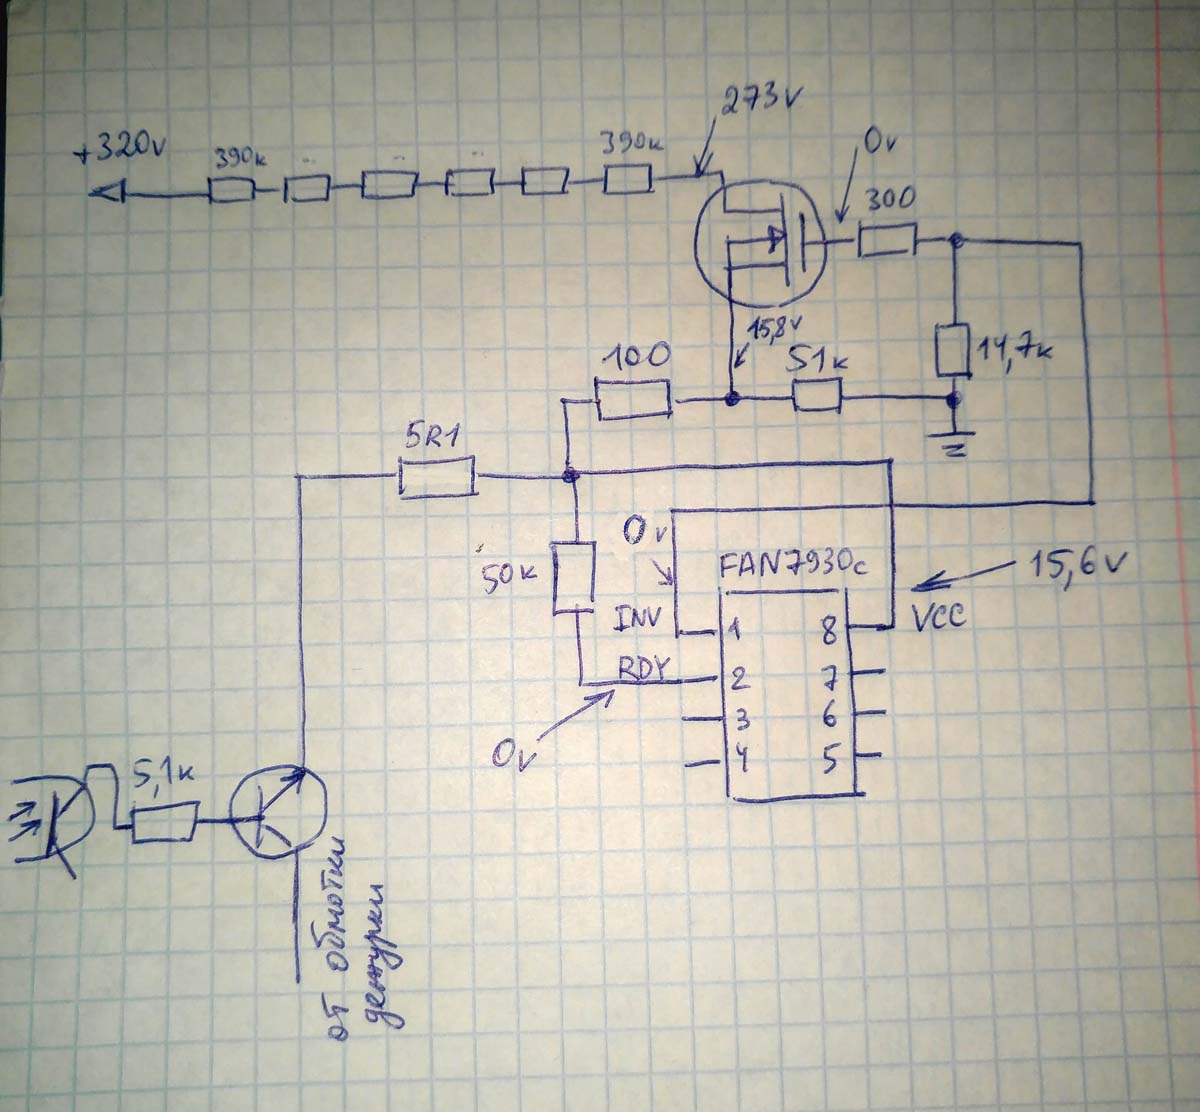 273v
+320v
390к
390к
0v
300
15,8v
100
51к
14,7к
5R1
0v
50к
FAN7930c
15,6v
INV
1
8
VCC
RDY
2
7
3
6
0v
4
5
5,1к
от обмотки
дежурки